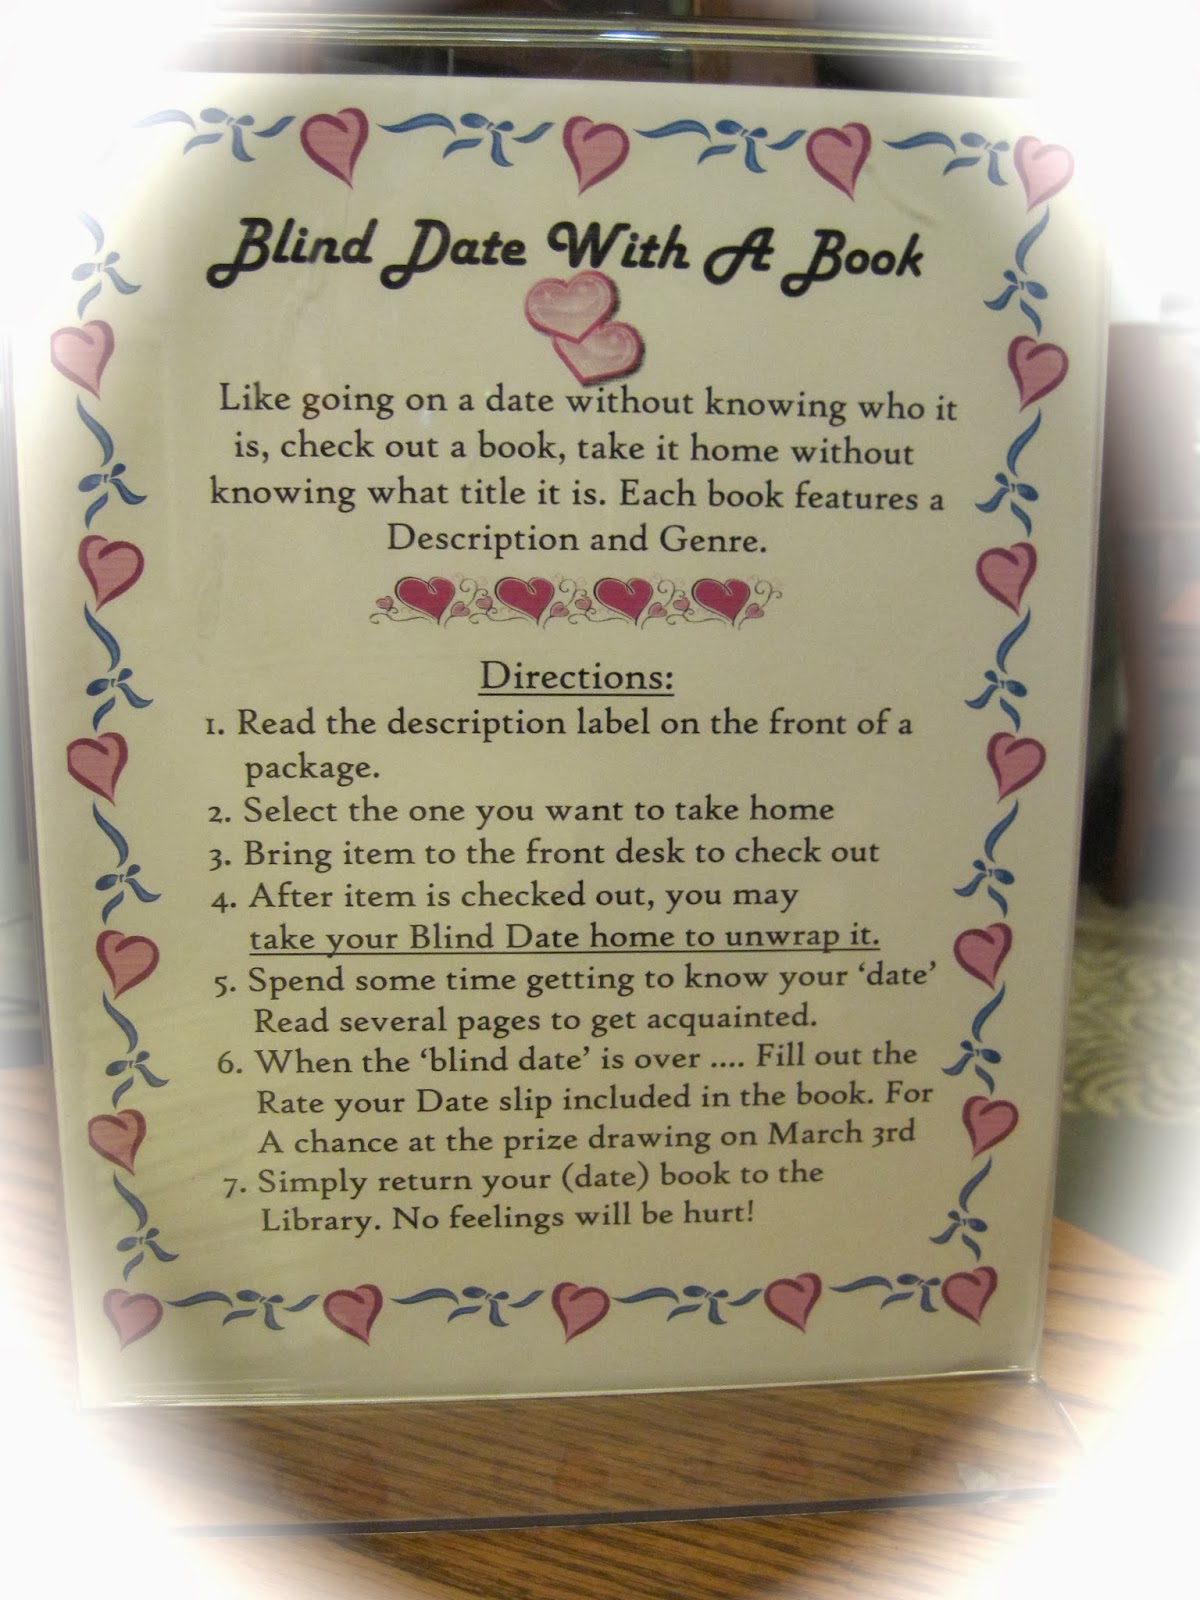 Blind Date With A Book
Like going on a date without knowing who it
is, check out a book, take it home without
knowing what title it is. Each book features a
Description and Genre.
Directions:
1. Read the description label on the front of a
package.
2. Select the one you want to take home
3. Bring item to the front desk to check out
4. After item is checked out, you may
take your Blind Date home to unwrap it.
5. Spend some time getting to know your ‘date’
Read several pages to get acquainted.
6. When the ‘blind date’ is over .... Fill out the
Rate your Date slip included in the book. For
A chance at the prize drawing on March 3rd
7. Simply return your (date) book to the
Library. No feelings will be hurt!